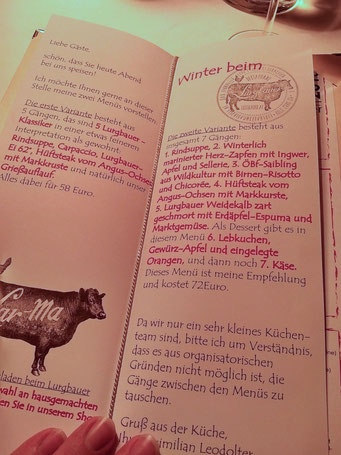 Liebe Gäste,
schön, dass Sie heute Abend
bei uns speisen!
Ich möchte Ihnen gerne an dieser
Stelle meine zwei Menüs vorstellen.
Die erste Variante besteht aus
5 Gängen, das sind 5 Lurgbauer-
Klassiker in einer etwas feineren
Interpretation als gewohnt.
Rindsuppe, Carpaccio, Lurgbauer-
Ei 62°, Hüftsteak vom Angus-Ochsen
mit Markkruste und natürlich unser
Grießauflauf.
Alles dabei für 58 Euro.
ar-Ma
laden beim Lurgbauer
wahl an hausgemachten
en Sie in unserem Sho
Winter beim
Die zweite Variante besteht aus
insgesamt 7 Gängen:
1. Rindsuppe, 2. Winterlich
marinierter Herz-Zapfen mit Ingwer,
Apfel und Sellerie, 3. ÖBf-Saibling
aus Wildkultur mit Birnen-Risotto
und Chicorée, 4. Hüftsteak vom
Angus-Ochsen mit Markkruste,
5. Lurgbauer Weidekalb zart
geschmort mit Erdäpfel-Espuma und
Marktgemüse. Als Dessert gibt es in
diesem Menü 6. Lebkuchen,
Gewürz-Apfel und eingelegte
Orangen, und dann noch 7. Käse.
Dieses Menü ist meine Empfehlung
und kostet 72Euro.
Da wir nur ein sehr kleines Küchen-
team sind, bitte ich um Verständnis,
dass es aus organisatorischen
Gründen nicht möglich ist, die
Gänge zwischen den Menüs zu
tauschen.
Gruß aus der Küche,
Ihr ximilian Leodolter